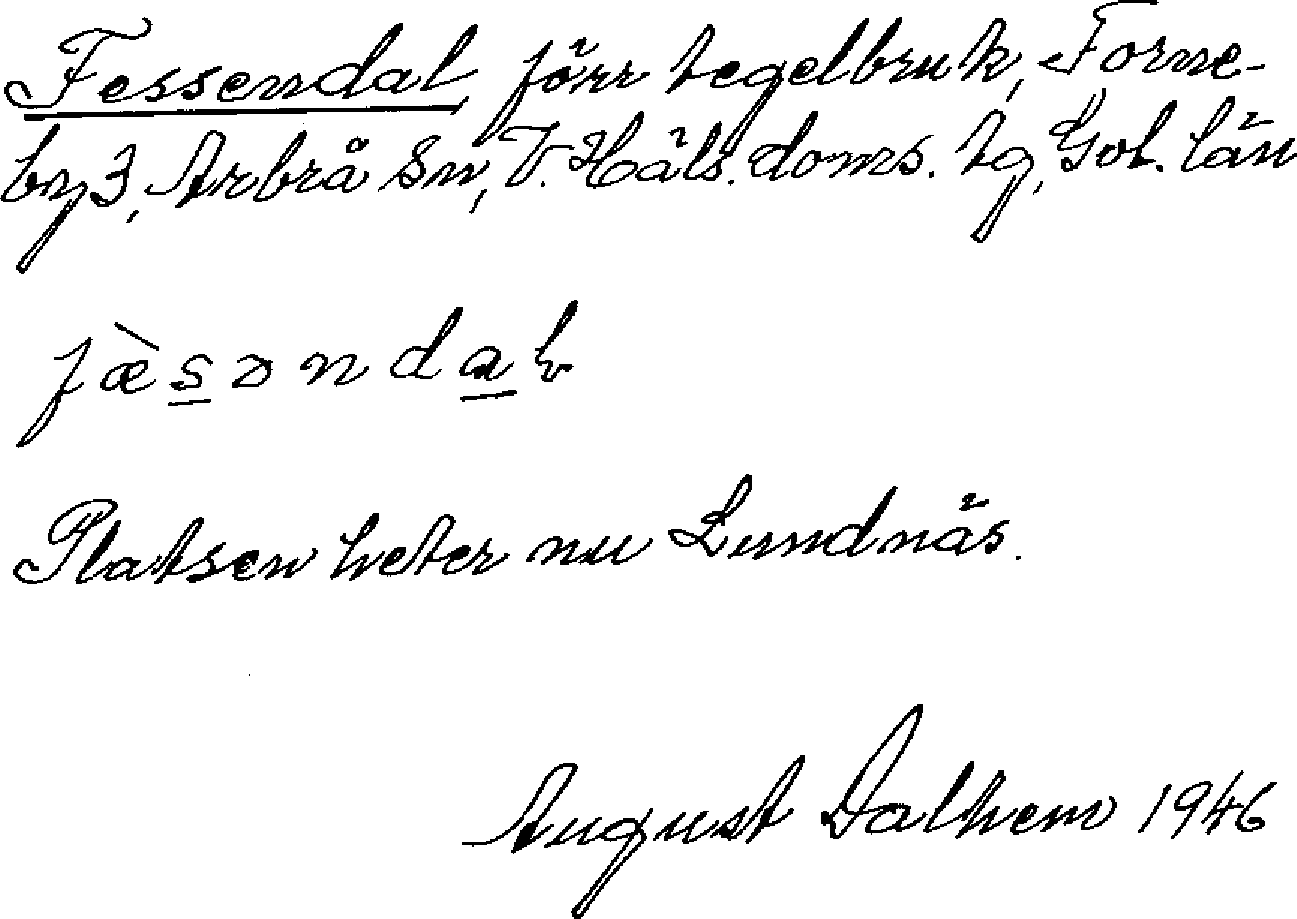 Fessendal, förr tegelbruk, Forne-
by 3, Arbrå sn, V. Häls. doms. tg, Gvl. län
fæ̀s̲ənda̲l
Platsen heter nu Lundnäs.
August Dalhem 1946